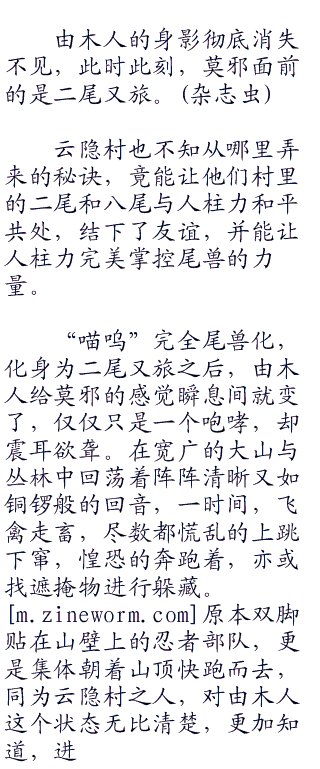 由木人的身影彻底消失
不见，此时此刻，莫邪面前
的是二尾又旅。(杂志虫)
云隐村也不知从哪里弄
来的秘诀，竟能让他们村里
的二尾和八尾与人柱力和平
共处，结下了友谊，并能让
人柱力完美掌控尾兽的力
量。
“喵呜”完全尾兽化，
化身为二尾又旅之后，由木
人给莫邪的感觉瞬息间就变
了，仅仅只是一个咆哮，却
震耳欲聋。在宽广的大山与
丛林中回荡着阵阵清晰又如
铜锣般的回音，一时间，飞
禽走畜，尽数都慌乱的上跳
下窜，惶恐的奔跑着，亦或
找遮掩物进行躲藏。
[m.zineworm.com]原本双脚
贴在山壁上的忍者部队，更
是集体朝着山顶快跑而去，
同为云隐村之人，对由木人
这个状态无比清楚，更加知
道，进